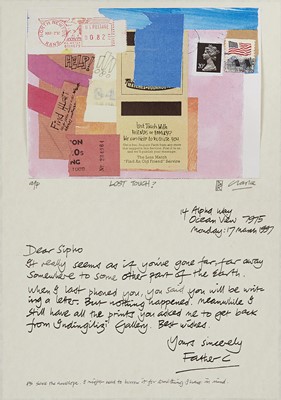 082
HELP!
Lost Touch With
FRIENDS or FAMILY?
We can help to re-unite you
The Lost Touch
"Find An Old Friend" Service
a/p
LOST TOUCH?
14 Alpha Way
Ocean View 7975
Monday: 17 March 1997
Dear Sipho
It really seems as if you've gone far far away
somewhere to some other part of the Earth.
When I last phoned you, you said you will be writ-
ing a letter. But nothing happened. Meanwhile I
still have all the prints you asked me to get back
from Indingilizi Gallery. Best wishes.
Yours sincerely
Father C
PS save the envelope. I might need to borrow it for something I have in mind.